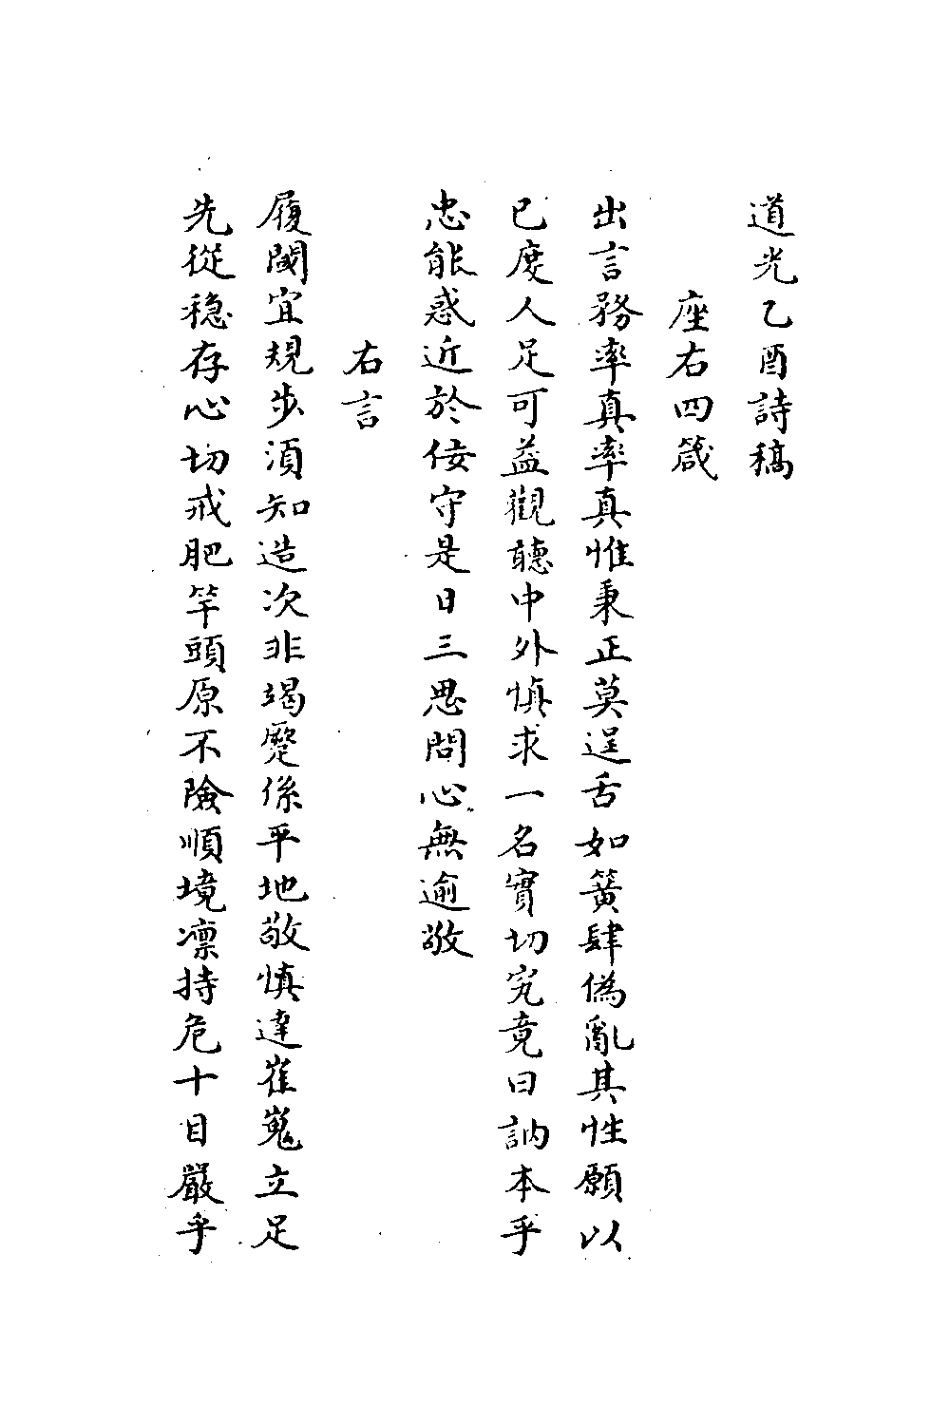 道光乙酉詩稿
座右四箴
出言務率真率真惟秉正莫逞舌如簧肆偽亂其性願以
已度人足可益觀聽中外慎求一名實切究竟曰訥本乎
忠能惑近於佞守是日三思問心無逾敬
右言
履閾宜規步須知造次非竭蹷係平地敬慎達崔嵬立足
先從穏存心切戒肥竿頭原不險順境凛持危十目嚴乎